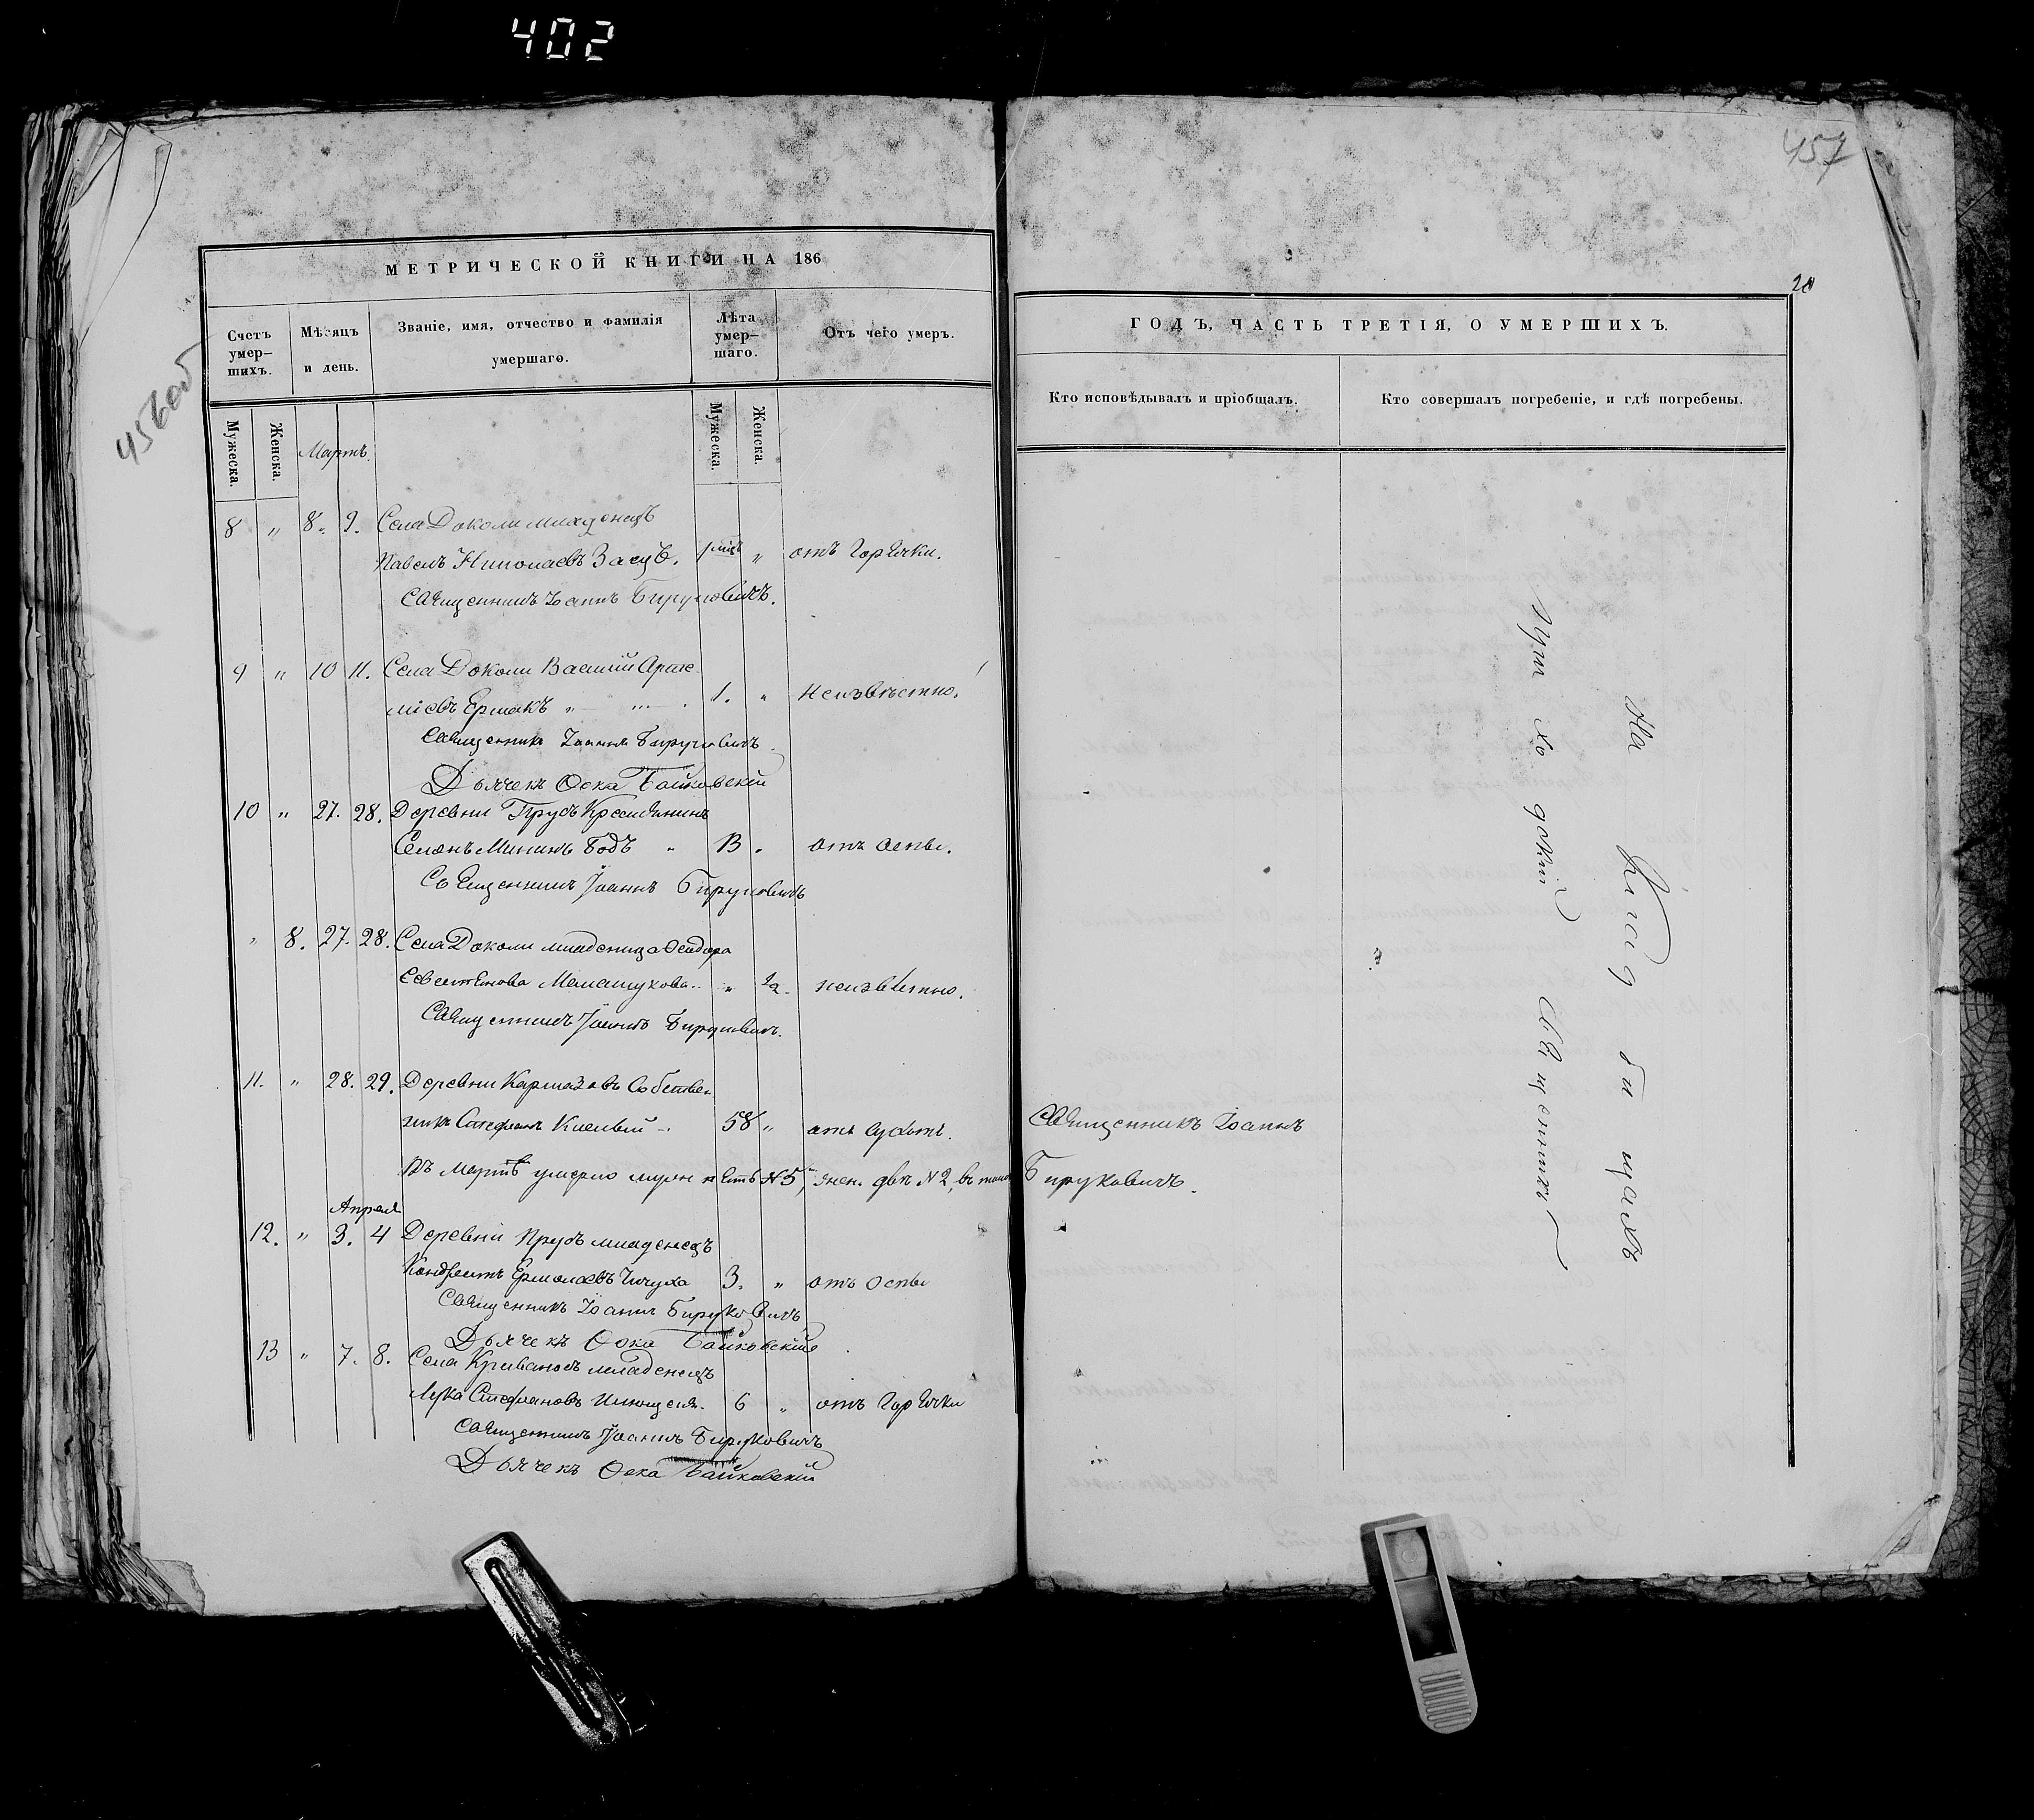 402
457
456об
20
МЕТРИЧЕСКОЙ КНИГИ НА 186
Счетъ умер–шихъ.
Мѣсяцъ и день.
Званіе, имя, отчество и фамилія умершаго.
Лѣта умер–шаго.
Отъ чего умеръ.
Мужеска.
Женска.
Мартъ.
Мужеска.
Женска.
8 " 8. 9. Села Доколи младенецъ
Павелъ Николаевъ Заецъ. 1 мцъ " отъ горячки.
Священникъ Іоаннъ Бируковичъ.
9 " 10 11. Села Доколи Василій
Ермакъ " 1. " неизвѣстно.
Священникъ Іоаннъ Бируковичъ
Дьячекъ Ѳока Байковскій
10 " 27. 28. Деревни Прусъ Крестьянинъ
Семенъ Мининъ 13 " отъ оспы.
Священникъ Іоаннъ Бируковичъ
" 8. 27. 28. Села Доколи младеница Ѳеодора
" 1/2. неизвѣстно.
Священникъ Іоаннъ Бируковичъ.
11. " 28. 29. Деревни Собствен
никъ Стефанъ 58 " отъ сухотъ.
Въ Мартѣ умерло мужч пять №5, жен. двѣ №2, въ
Апреля
12. " 3. 4 Деревни Прусъ младенецъ
Кондратъ Ермолаевъ 3. " отъ оспы
Священникъ Іоаннъ Бируковичъ
Дьячекъ Ѳока Байковскій
13 " 7. 8. Села младенецъ
Лука Стефановъ 6 " отъ горячки
Священникъ Іоаннъ Бируковичъ
Дьячекъ Ѳока Байковскій
ГОДЪ, ЧАСТЬ ТРЕТІЯ, О УМЕРШИХЪ.
Кто исповѣдывалъ и пріобщалъ.
Кто совершалъ погребеніе, и гдѣ погребены.
Священникъ Іоаннъ
Бируковичъ.
На Клад би щахъ
при хо дскій Священникъ